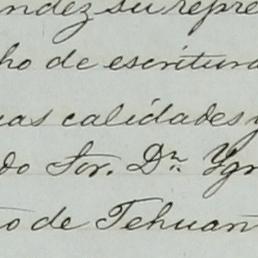 ndez su repre
ho de escritura
uas calidades y
do Sor. Dn. Ygn
o de Tehuan